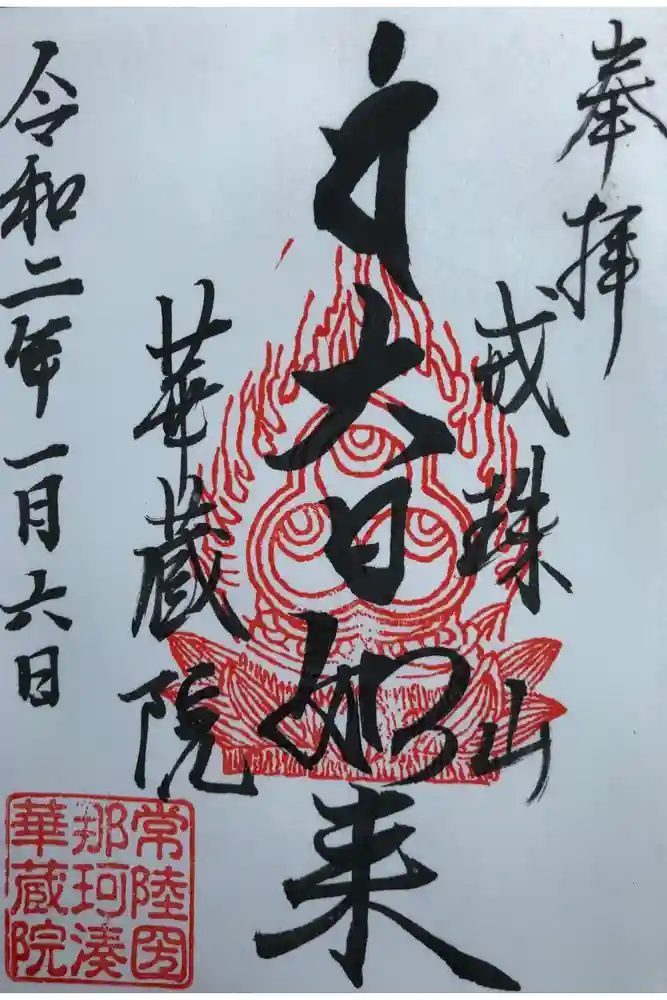 奉拝
戒珠山
大日如来
華蔵院
令和二年一月六日
常陸国
那珂湊
華蔵院